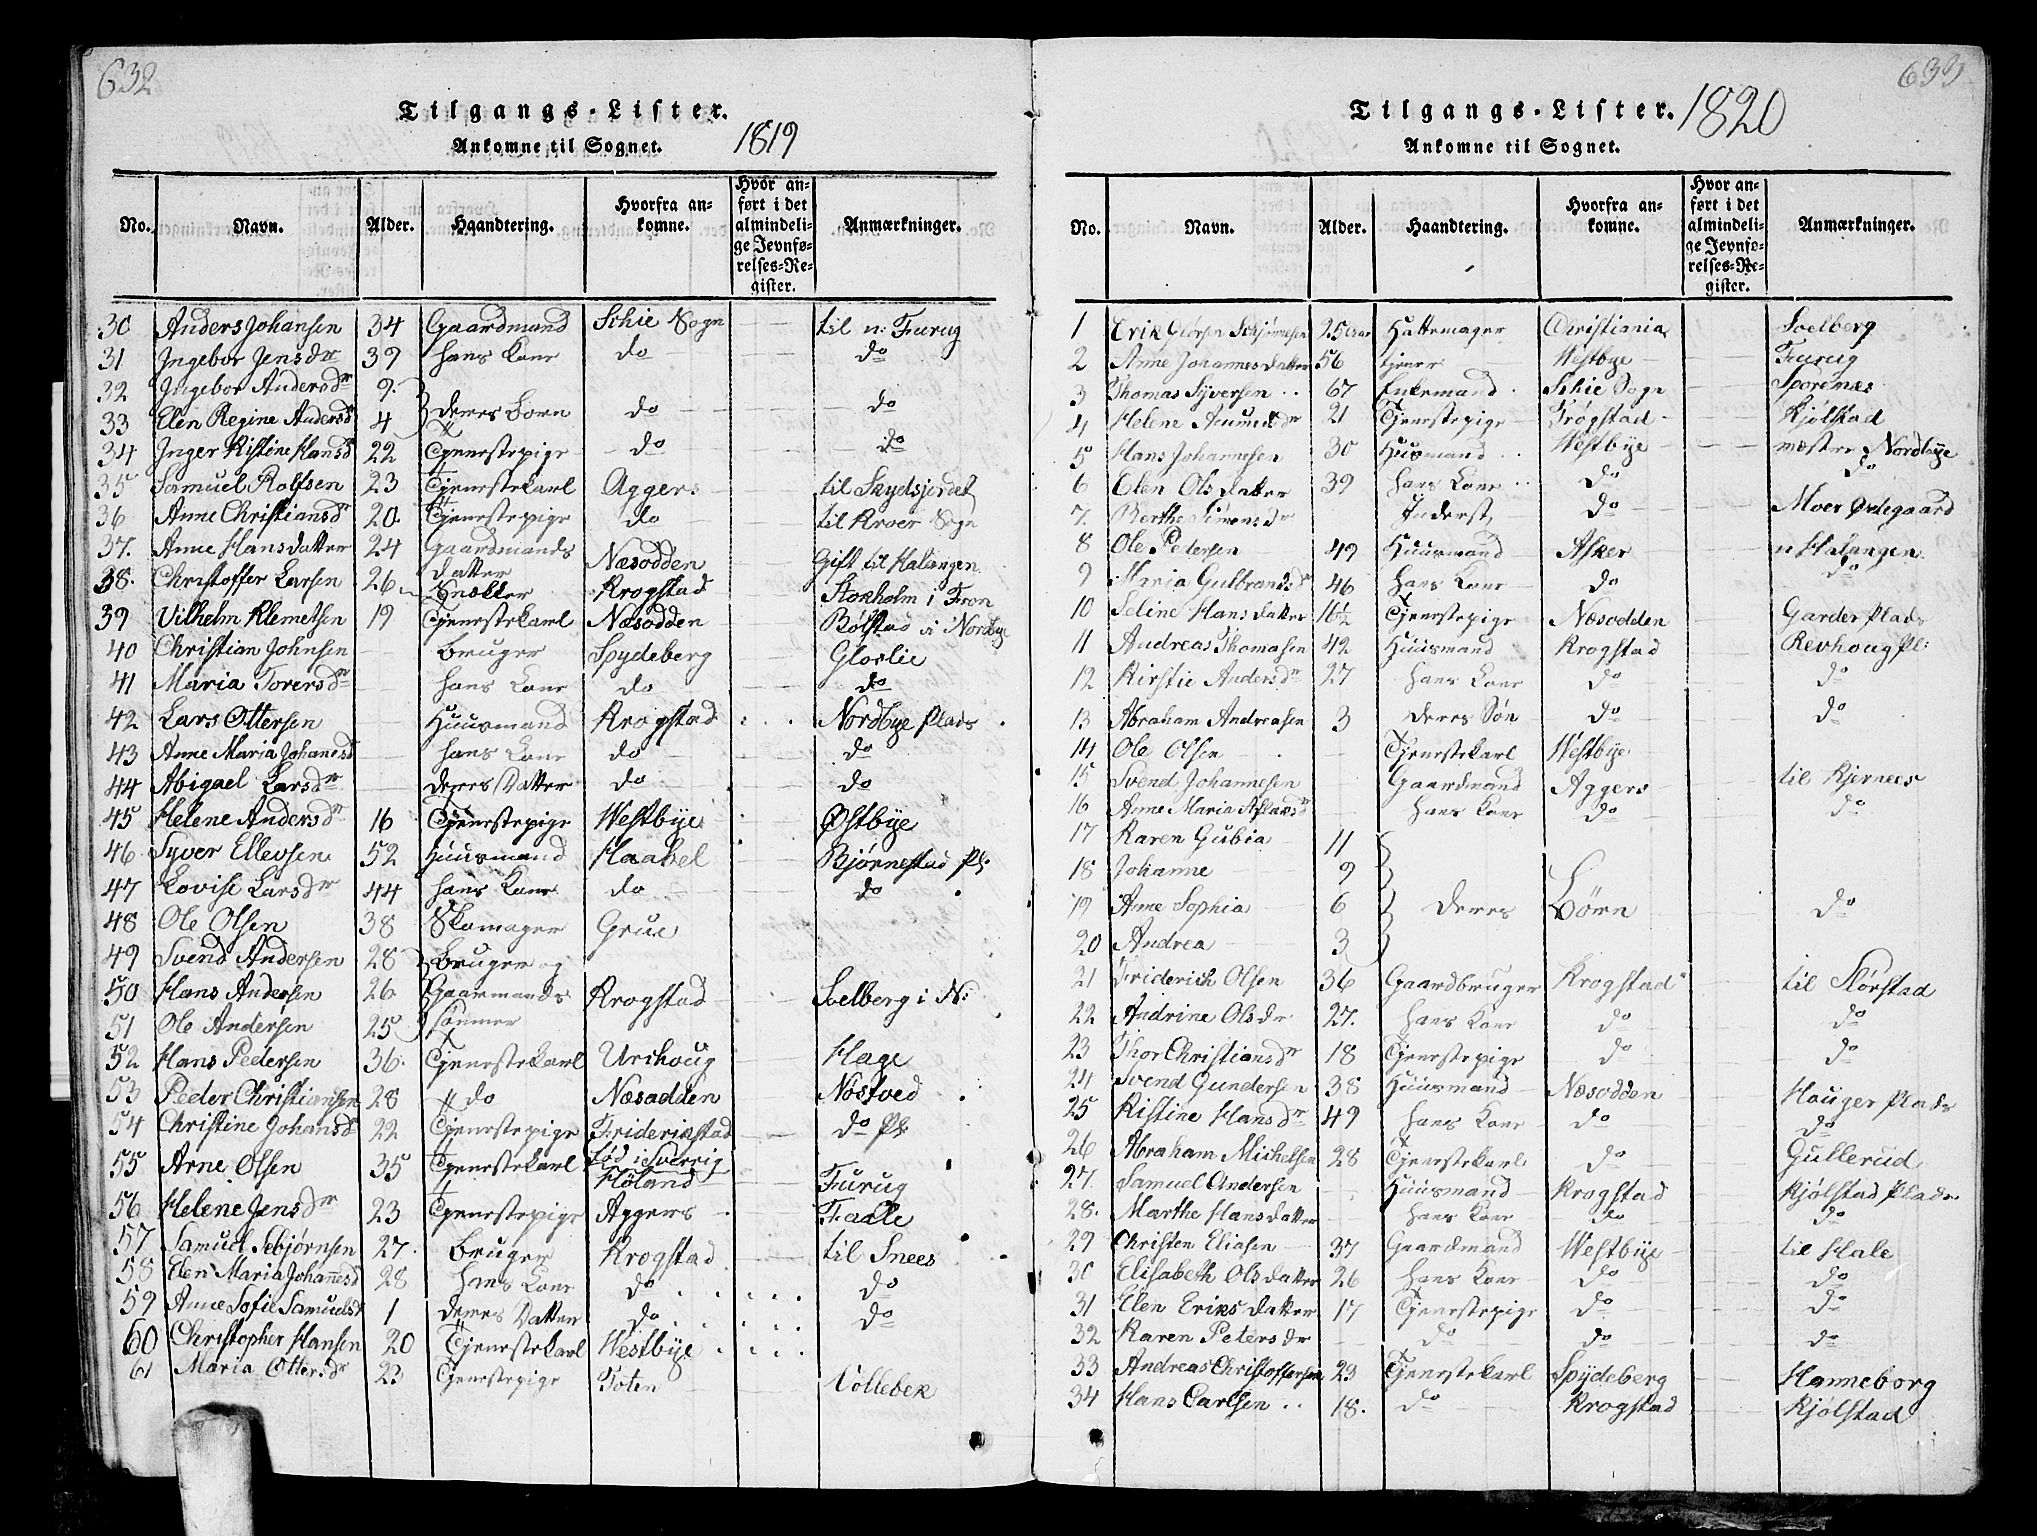 632
Tilgangs-Lister.
Ankomne til Sognet. 1819
No. Navn. Alder. Haandtering. Hvorfra ankomne. Hvor anført i det almindelige Jevnførelses-Register. Anmærkninger.
30 Anders Johansen 34 Gaardmand Schie Sogn til n: Furug
31 Ingebor Jensdr 39 hans Kone do do
32 Ingebor Andersdr 9.
33 Elen Regine Andersd 4 deres Born do do
34 Inger Kistine Hansd 22 Tjenestepige do do
35 Samuel Rolfsen 23 Tjenestekarl Aggers til Skydsjordet
36 Anne Christiansdr 20 Tjenestepige do til Kroer Sogn
37. Anne Hansdatter 24 Gaardmands Datter Næsodden Gift til Halangen
38. Christoffer Larsen 26 Krogstad Stokholm i Fron
39 Vilhelm Klemetsen 19 Tjenestekarl Næsodden Bølstad i Nordbye
40 Christian Johnsen Bruger Spydeberg Gloslie
41 Maria Torersdr hans Kone do do
42 Lars Ottersen Huusmand Krogstad Nordbye Plads
43 Anne Maria Johanesd hans Kone do do
44 Abigael Larsdr deres Datter do do
45 Helene Andersdr 16 Tjenestepige Westbye Østbye
46 Syver Ellevsen 52 Huusmand Haabel Bjørnestad Pl.
47 Lovise Larsdr 44 hans Kone do do
48 Ole Olsen 38 Skomager Grue
49 Svend Andersen 28 Bruger og
50 Hans Andersen 26 Gaarmands Krogstad Solberg i N:
51 Ole Andersen 25 sønner
52 Hans Pedersen 36. Tjenestekarl Urshoug Hage
53 Peder Christiansen 28 do Næsodden Nøstved
54 Christine Johansd 22 Tjenestepige Friderikstad do Pl
55 Arne Olsen 35 Tjenestekarl fød i Sverrig Høland Furug
56 Helene Jensdr 23 Tjenestepige Aggers Faale
57 Samuel Sebjørnsen 27. Bruger Krogstad til Snees
58 Elen Maria Johannesd 28 hans Kone do do
59 Anne Sofie Samuelsd 1 deres Datter do do
60 Christopher Hansen 20 Tjenestekarl Westbye
61 Maria Ottersdr 23 Tjenestepige Toten Vollebek
633
Tilgangs-Lister. 1820
Ankomne til Sognet.
No. Navn. Alder. Haandtering. Hvorfra ankomne. Hvor anført i det almindelige Jevnførelses-Register. Anmærkninger.
1 Erik 25 aar Hattemager Christiania Soelberg
2 Anne Johannesdatter 56 tjener Westbye Furug
3 Thomas Syversen 67 Enkemand Schie Sogn Sporenæs
4 Helene 21 Tjenestepige Trøgstad Kjølstad
5 Hans Johannesen 30 Huusmand Westbye Nordbye
6 Elen Olsdatter 39 hans Kone do do
7. Berthe Simensdr Inderst do Moer Ødegaard
8 Ole Petersen 49 Huusmand Asker n Halangen
9 Maria Gulbrandsdr 46 hans Kone do do
10 Seline Hansdatter 16½ Tjenestepige Næsodden Garder Plads
11 Andreas Thomasen 42 Huusmand Krogstad Revhoug Pl:
12 Kirstie Andersdr 27 hans Kone do do
13 Abraham Andreasen 3 deres Søn do do
14 Ole Olsen Tjenestekarl Westbye
15 Svend Johannesen Gaardmand Aggers til Kjernees
16 Anne Maria Aslaksdr hans Kone do do
17 Karen Gubia 11
18 Johanne 9
19 Anne Sophia 6 deres Børn do
20 Andrea 3
21 Friderich Olsen 36 Gaardbruger Krogstad til Størstad
22 Andrine Olsdr 27. hans Kone do do
23 Thor Christiansdr 18 Tjenestepige do do
24 Svend Gundersen 38 Huusmand Næsodden Hauger Plads
25 Kistine Hansdr 49 hans Kone do do
26 Abraham Michelsen 28 Tjenestekarl do Gullerud
27. Samuel Andersen Huusmand Krogstad Kjølstad Plads
28. Marthe Hansdatter hans Kone do do
29 Christen Eliasen 37 Gaardmand Westbye til Hale
30 Elisabeth Olsdatter 26 hans Kone do do
31 Elen Eriksdatter 17 Tjenestepige do do
32 Karen Petersdr do do do
33 Andreas Christoffersen 23 Tjenestekarl Spydeberg Hanneborg
34 Hans Carlsen 18. do Krogstad Kjølstad